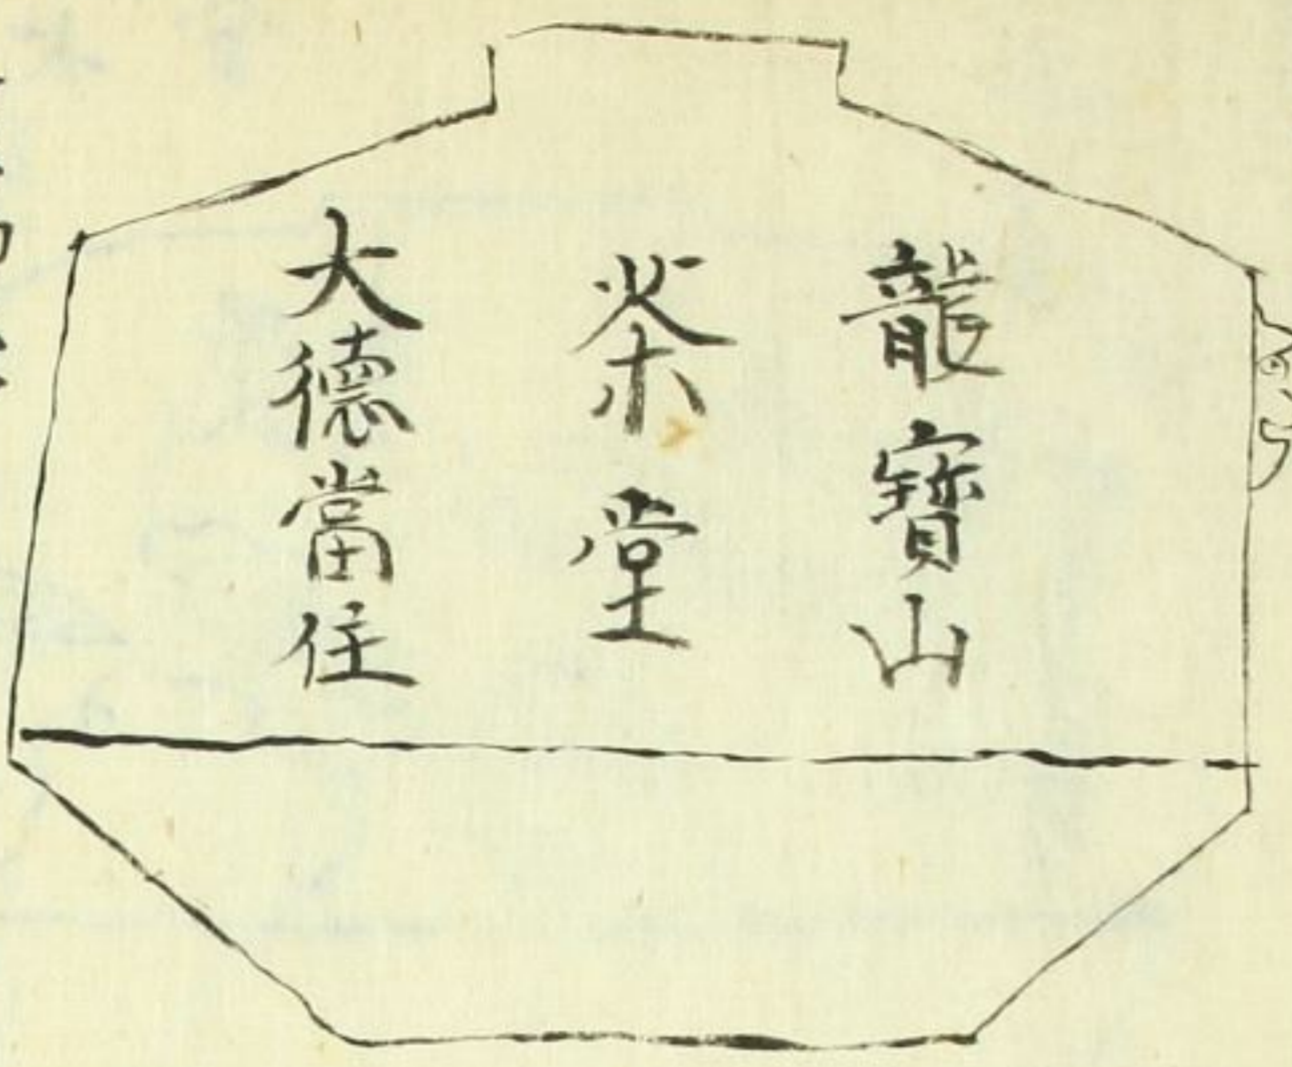 龍寶山
茶堂
大德當住